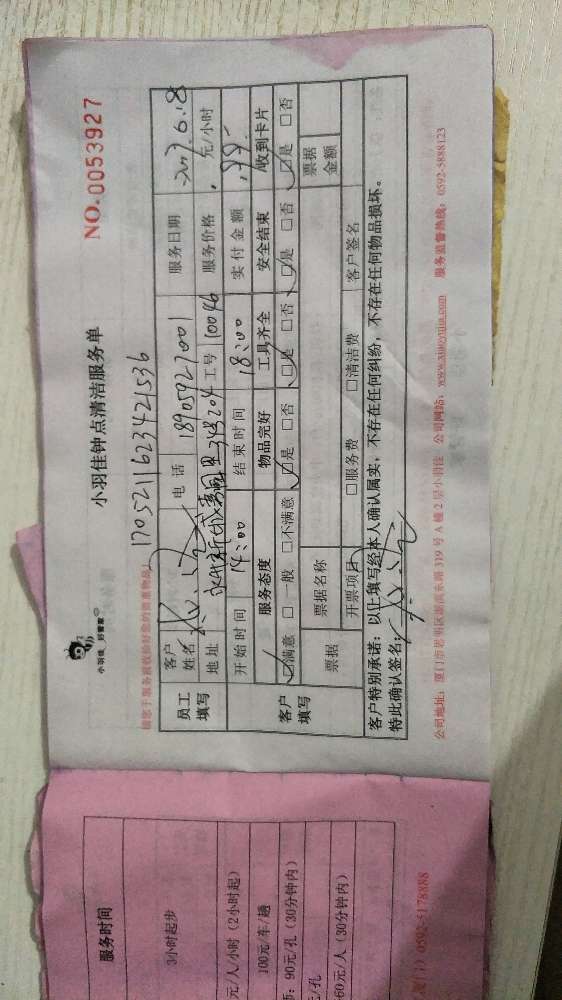 小羽佳 好管家
小羽佳钟点清洁服务单
NO.0053927
请您于服务前收拾好您的贵重物品！
1705211623421536
员工填写
客户姓名
电话 18905927001
服务日期 2017.6.8
地址
204
工号 10046
服务价格 元/小时
客户填写
开始时间 14:00
结束时间 18:00
实付金额 199
服务态度
物品完好
工具齐全
安全结束
收到卡片
☑满意 □一般 □不满意
☑是 □否
☑是 □否
☑是 □否
☑是 □否
票据
票据名称
票据金额
开票项目
□服务费
□清洁费
客户签名
客户特别承诺：以上填写经本人确认属实，不存在任何纠纷，不存在任何物品损坏。
特此确认签名：
公司地址：厦门市思明区湖滨东路319号A幢2层小羽佳 公司网站：www.xiaoyujia.com 服务监督热线：0592-5888123
服务时间
3小时起步
元/人/小时（2小时起）
100元/车/趟
90元/孔（30分钟内）
/孔
60元/人（30分钟内）
门）0592-5178888